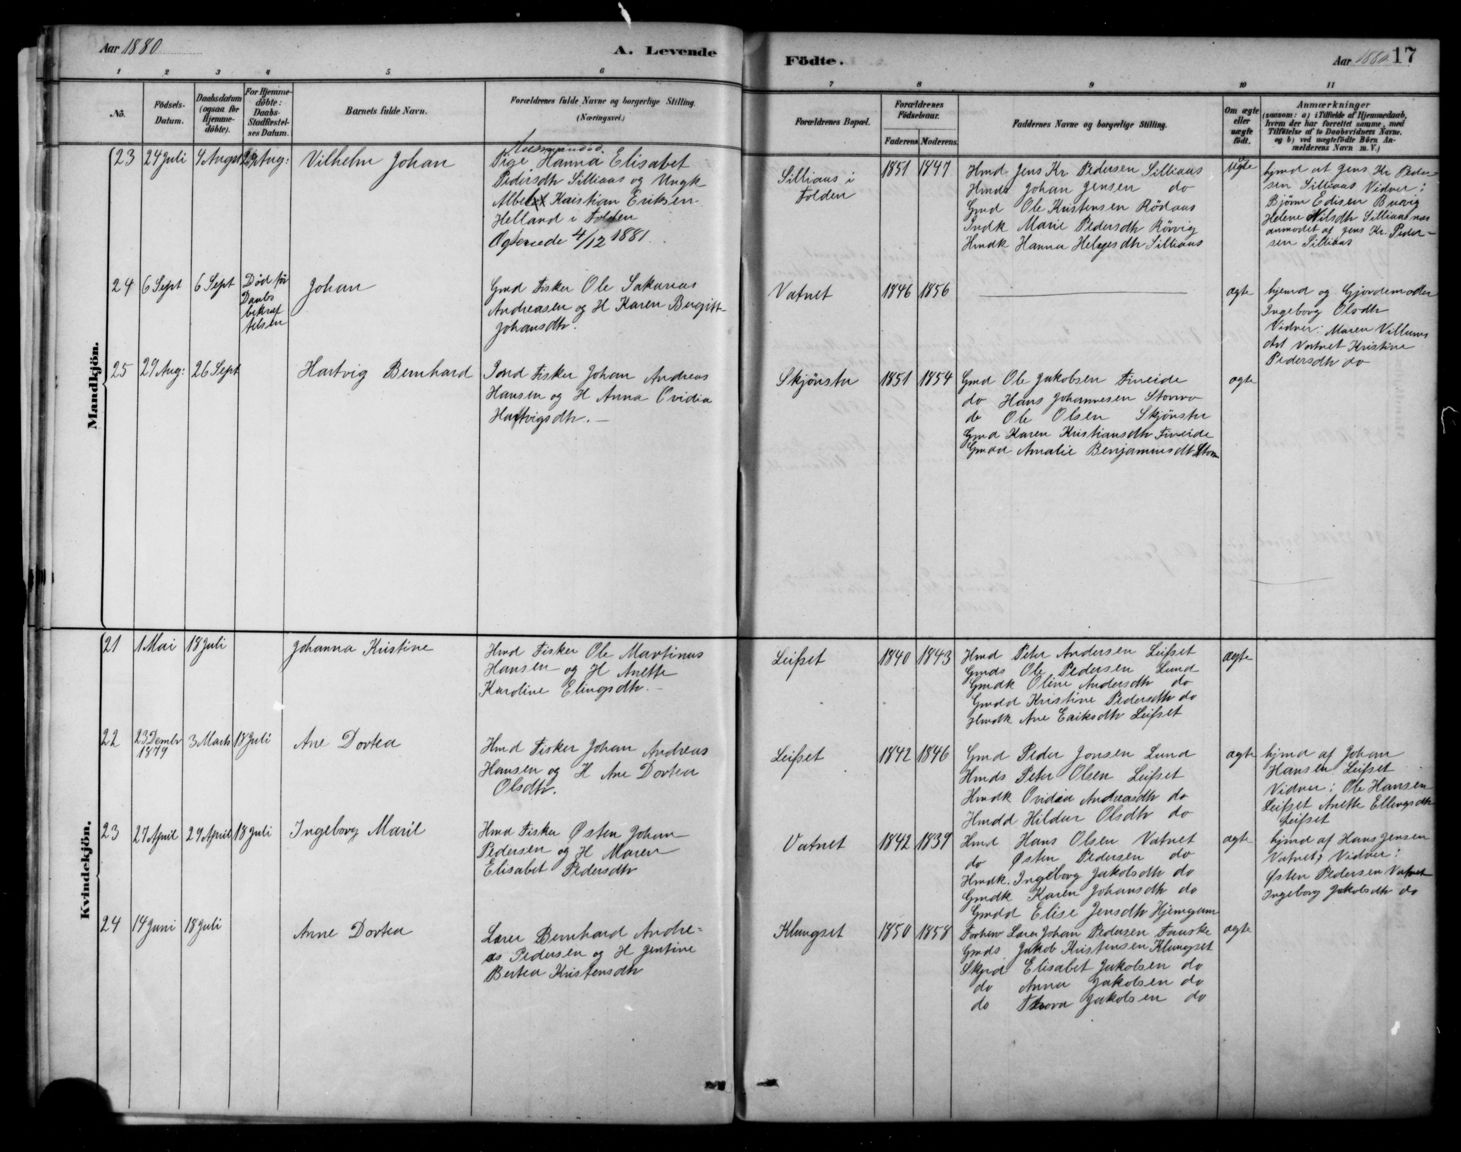 Aar 1880
A. Levende
Födte.
Aar 1880
17
1 2 3 4 5 6 7 8 9 10 11
No.
Födsels-
Datum.
Daabsdatum
(ogsaa for
Hjemme-
døbte).
For Hjemme-
døbte:
Daabs-
Stadfæstel-
ses Datum.
Barnets fulde Navn.
Forældrenes fulde Navne og borgerlige Stilling.
(Næringsvei.)
Forældrenes Bopæl.
Forældrenes
Födselsaar.
Faderens
Moderens
Faddernes Navne og borgerlige Stilling.
Om ægte
eller
uægte
født.
Anmærkninger
(saasom: a) i Tilfælde af Hjemmedaab,
hvem der har forrettet samme, med
Tilføielse af to Daabsvidners Navne.
og b) ved uægtefødte Børn An-
melderens Navn m. V.)
Mandkjön.
23 24 Juli 4 August 29 Aug: Vilhelm Johan
Pige Hanna Elisabet
Pedersdtr Silliaas og Ungk
Albert Kristian Eriksen
Helland i Folden
Ægteviede 4/12 1881.
Silliaas i
Folden
1851 1847
Hmd Jens Kr Pedersen Silliaas
Hmds Johan Jensen do
Gmd Ole Kristensen Rödaas
Indk Marie Pedersdtr Rörvig
Hmdk Hanna Helgesdtr Silliaas
uægte
hjmd af Jens Kr Peder-
sen Silliaas Vidner:
Björn Edisen Buvig
Helene Nilsdtr Silliaas
anmodet af Jens Kr. Peder-
sen Silliaas
24 6 Sept 6 Sept
Död för
Daabs
bekræf
telsen
Johan
Gmd Fisker Ole Sakarias
Andreasen og H Karen Birgitte
Johansdtr.
Vatnet
1846 1856
ægte
hjemd og Gjordemoder
Ingeborg Olsdtr
Vidner: Maren Villums
dtr Vatnet Kristine
Pedersdtr do
25 29 Aug: 26 Sept Hartvig Bernhard
Ind Fisker Johan Andreas
Hansen og H Anna Ovidia
Hartvigsdtr. —
Skjönstu
1851 1854
Gmd Ole Jakobsen Fineide
do Hans Johannesen Stormo
do Ole Olsen Skjönstu
Gmd Karen Kristiansdtr Fineide
Gmdd Amalie Benjaminsdtr Storm
ægte
Kvindekjön.
21 1 Mai 18 Juli Johanna Kristine
Hmd Fisker Ole Martinus
Hansen og H Anette
Karoline Elingsdtr. —
Leifset
1840 1843
Hmd Peter Andersen Leifset
Gmds Ole Pedersen Lund
Gmdk Oline Andersdtr do
Gmdd Kristine Pedersdtr do
Hmdk Ane Eriksdtr Leifset
ægte
22 23 Decmbr
1879
3 Marts 18 Juli Ane Dortea
Hmd Fisker Johan Andreas
Hansen og H Ane Dortea
Olsdtr.
Leifset
1842 1846
Gmd Peder Jonsen Lund
Hmds Peter Olsen Leifset
Hmdk Ovidia Andreasdtr do
Hmdd Hildur Olsdtr do
ægte
hjmd af Johan
Hansen Leifset
Vidner: Ole Hansen
Leifset Anette Ellingsdtr
Leifset
23 27 April 29 April 18 Juli Ingeborg Maril
Hmd Fisker Østen Johan
Pedersen og H Maren
Elisabet Pedersdtr
Vatnet
1842 1839
Hmd Hans Olsen Vatnet
do Østen Pedersen do
Hmdk. Ingeborg Jakobsdtr do
Gmdk Karen Johansdtr do
Gmdd Elise Jensdtr Hjemgam
ægte
hjmd af Hans Jensen
Vatnet; Vidner:
Østen Pedersen Vatnet
Ingeborg Jakobsdtr do
24 14 Juni 18 Juli Anne Dortea
Lærer Bernhard Andre-
as Pedersen og H Jentine
Bertea Kristensdtr
Klungset
1850 1858
Forhen Lærer Johan Pedersen Fauske
Gmds Jakob Kristensen Klungset
Skjrd Elisabet Jakobsen do
do Anna Jakobsen do
do Thora Jakobsen do
ægte